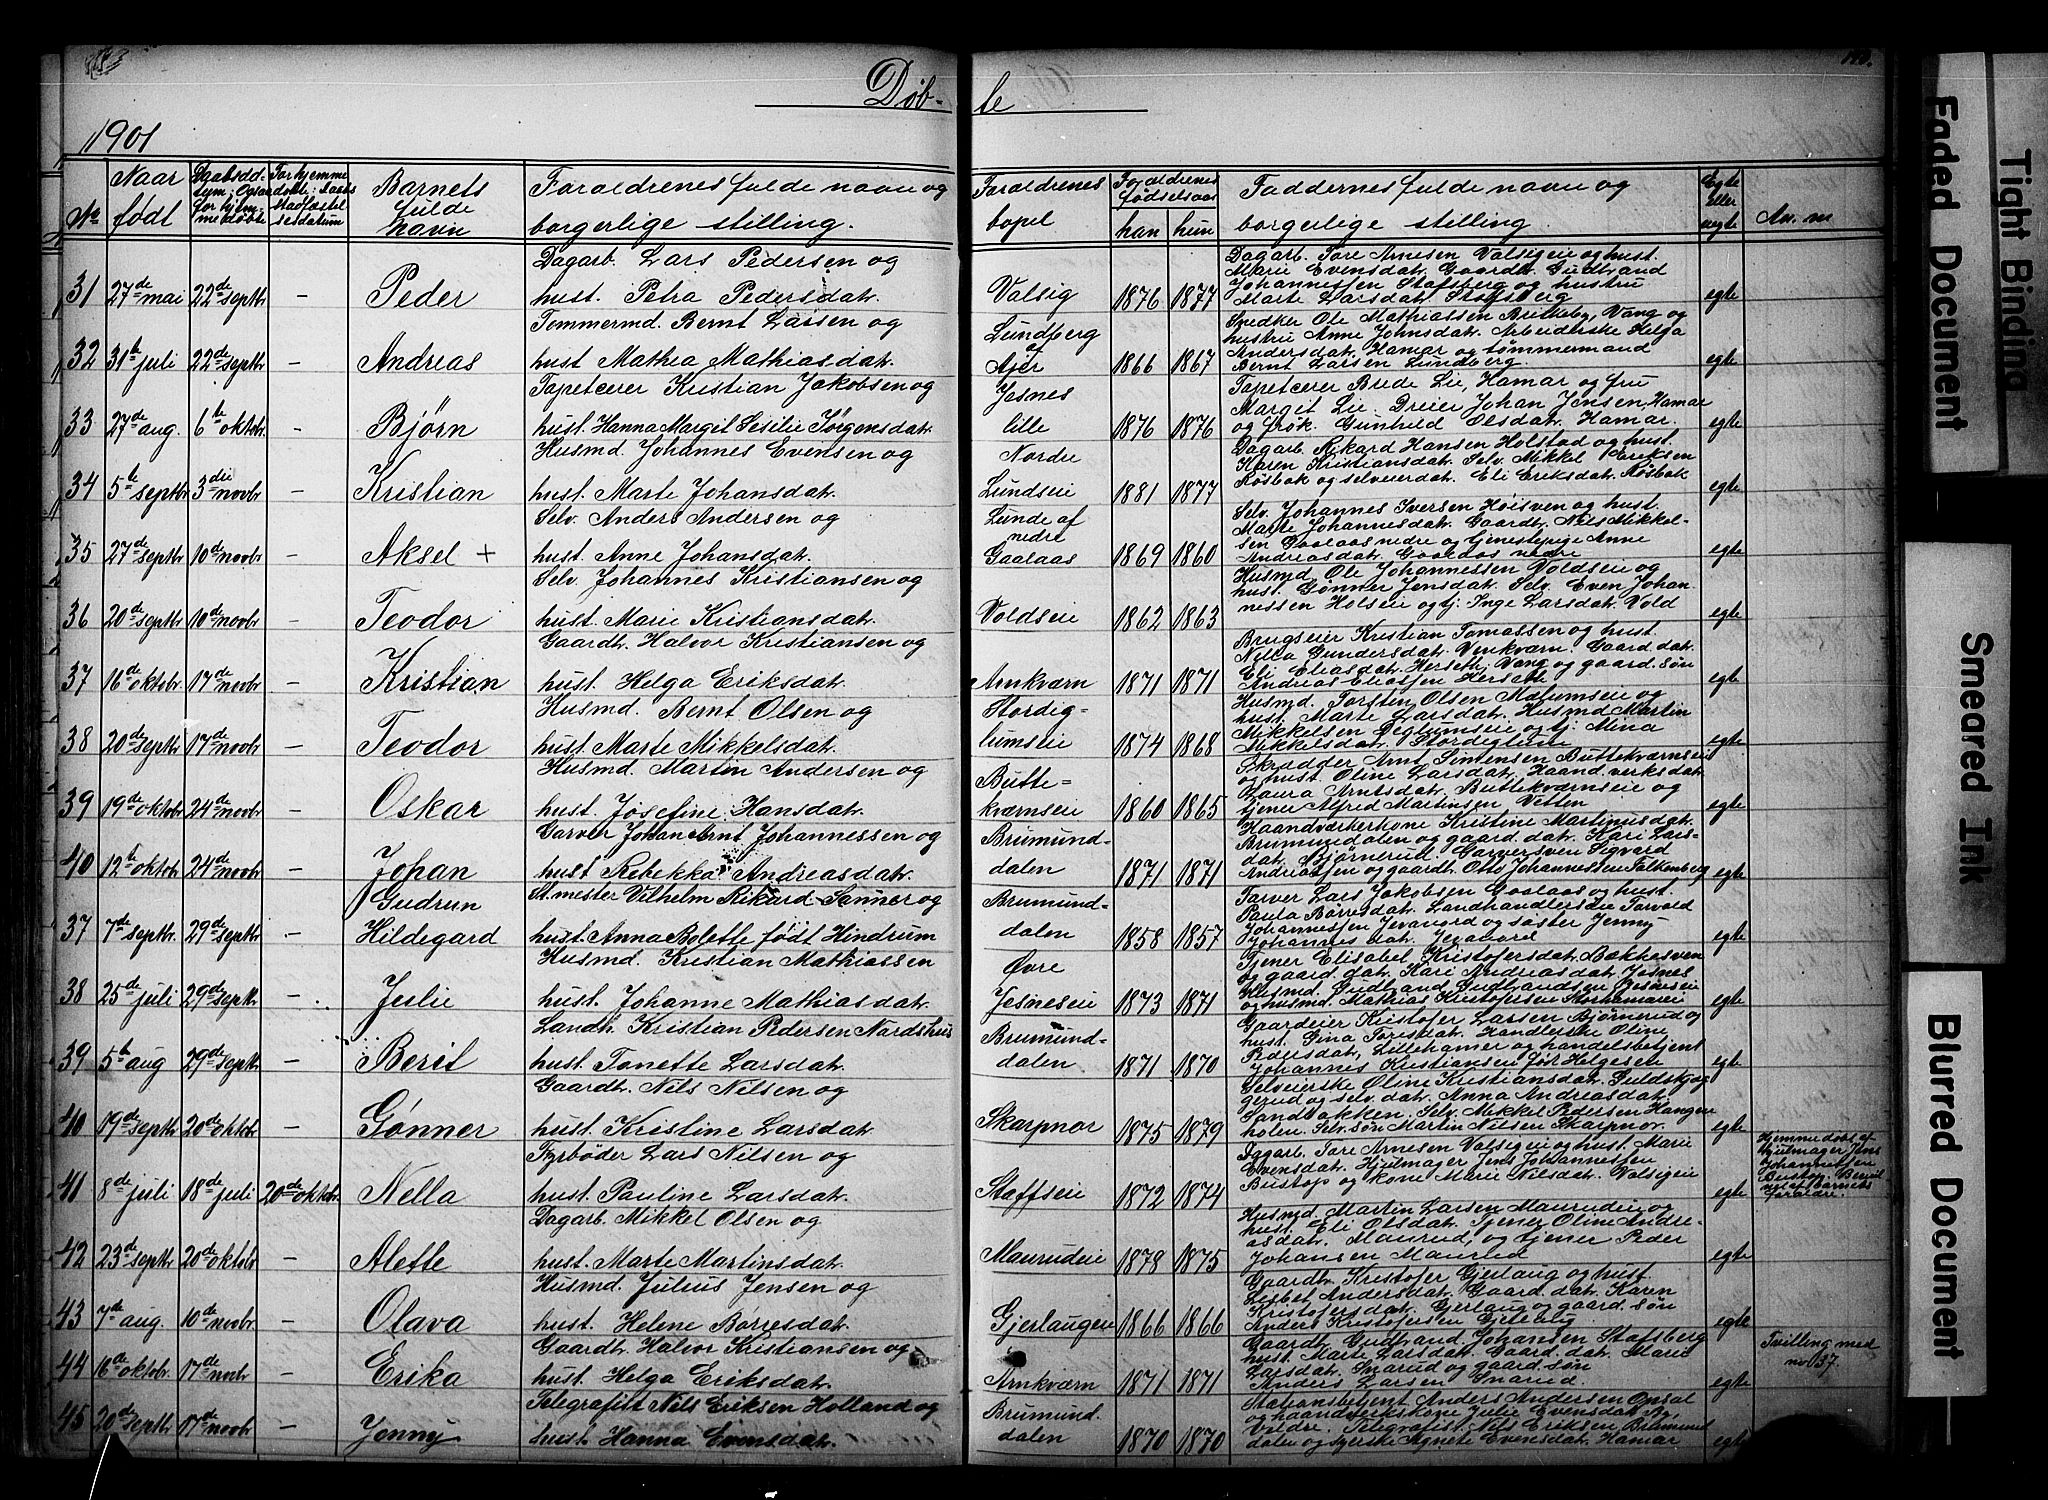 Døb-
te
1901
No
Naar født
Daabsd.
For hjemme
Barnets fulde navn
Forældrenes fulde navn og borgerlige stilling.
Forældrenes bopel
Forældrenes fødselsaar
han
hun
Faddernes fulde navn og borgerlige stilling
Egte eller uegte
An. m
31 27de mai 22de septbr — Peder
Dagarb. Lars Pedersen og
hust. Petra Pedersdatr.
Valsig 1876 1877
Dagarb. Tore Arnesen Valsigeie og hust.
Marie Evensdatr. Gaardbr. Gudbrand
Johannessen Stafsberg og hustru
Marte Larsdatr. Stafsberg
egte
32 31te juli 22de septbr — Andreas
Tømmermd. Bernt Larsen og
hust Mathea Mathiasdatr.
Lundberg af Ajer 1866 1867
Snedker Ole Mathiassen Brukeby, Vang og
hustru Anne Johnsdatr. Arbeiderske Helga
Andersdatr. Hamar og tømmermand
Bernt Larsen Lundberg.
egte
33 27de aug. 6te oktobr. — Bjørn
Tapetcerer Kristian Jakobsen og
hust. Hanna Margit Sesilie Jørgensdatr.
Jesnes lille 1876 1876
Tapetcerer Brede Lie, Hamar og fru
Margit Lie. Dreier Johan Jensen, Hamar
og frøk. Gunhild Olsdatr. Hamar.
egte
34 5te septbr 3die novbr — Kristian
Husmd. Johannes Evensen og
hust. Marte Johansdatr.
Nordre Lundseie 1881 1877
Dagarb. Rikard Hansen Holstad og hust.
Karen Kristiansdatr. Selv. Mikkel Eriksen
Røsbak og selveierdatr. Eli Eriksdatr. Røsbak
egte
35 27de septbr 10de novbr — Aksel +
Selv. Anders Andersen og
hust. Anne Johansdatr.
Lunde af nedre Gaalaas 1869 1860
Selv. Johannes Iversen Høisven og hust.
Marte Johannesdatr. Gaardbr. Nils Mikkel-
sen Gaalaas nedre og tjenestepige Anne
Andreasdatr. Gaalaas nedre
egte
36 20de septbr 10de novbr — Teodor
Selv. Johannes Kristiansen og
hust. Marie Kristiansdatr.
Voldseie 1862 1863
Husmd. Ole Johannessen Voldseie og
hust. Gønner Jensdatr. Selv. Even Johan-
nessen Holseie og tj. Inge Larsdatr. Vold
egte
37 16de oktobr. 17de novbr — Kristian
Gaardbr. Halvor Kristiansen og
hust. Helga Eriksdatr.
Arnkværn 1871 1871
Brugseier Kristian Tomassen og hust.
Nella Gundersdatr. Venkværn. Gaard.datr.
Eli Eliasdatr. Herseth, Vang og gaard.søn
Andreas Eliassen Herseth
egte
38 20de septbr 17de novbr — Teodor
Husmd. Bernt Olsen og
hust. Marte Mikkelsdatr.
Stordig-lumseie 1874 1868
Husmd. Torsten Olsen Mælumseie og
hust. Marte Larsdatr. Husmd Martin
Mikkelsen Deglumseie og tj. Mina
Mikkelsdatr. Stordiglum
egte
39 19de oktobr 24de novbr — Oskar
Husmd. Martin Andersen og
hust. Josefine Hansdatr.
Butte-kværnseie 1860 1865
Skrædder Arnt Simensen Buttekværnseie
og hust. Oline Larsdatr. Haand.verksdatr
Laura Arntsdatr. Buttekværnseie og
tjener Alfred Martinsen Vetten
egte
40 12te oktobr 24de novbr — Johan
Garver Johan Arnt Johannessen og
hust Rebekka Andreasdatr.
Brumund-dalen 1871 1871
Haandværkerkone Kristine Martinusdatr.
Brumunddalen og gaard.datr. Kari Lars-
datr. Bjørnerud. Garversven Sigvard
Andreassen og gaardbr. Otto Johannessen Falkenberg
egte
37 7de septbr. 29de septbr — Gudrun Hildegard
St.mester Vilhelm Rikard Sanner og
hust. Anna Bolette født Hindrum
Brumund-dalen 1858 1857
Farver Lars Jakobsen Gaalaas og hust.
Paula Børresdatr. Landhandlersdie Torvald
Johannessen Jevanord og søster Jenny
Johannesdatr. Jevanord
egte
38 25de juli 29de septbr — Julie
Husmd. Kristian Mathiassen
hust. Johanne Mathiasdatr.
Øvre Jesneseie 1873 1871
Tjener Elisabet Kristofersdatr. Bakkesven
og gaard.datr. Kari Andreasdatr. Jesnes
Husmd. Gudbrand Gudbrandsen Jesneseie
og husmd. Mathias Kristofersen Storhamareie
egte
39 5te aug 29de septbr — Berit
Landh. Kristian Pedersen Nordshus
hust. Tonette Larsdatr.
Brumund-dalen 1871 1870
Gaardeier Kristofer Larsen Bjørnerud og
hust. Gina Toresdatr. Handlerske Oline
Pedersdatr, Lillehamer og handelsbetjent
Johannes Kristiansen før Helgesen
egte
40 19de septbr 20de oktobr — Gønner
Gaardbr. Nils Nilsen og
hust. Kristine Larsdatr.
Skarpnor 1875 1879
Selveierske Oline Kristiansdatr. Guldskog-
gerud og selv.datr. Anna Andreasdatr.
Sandbakken. Selv. Mikkel Pedersen Hangen-
holen. Selv.søn Martin Nilsen Skarpnor.
egte
41 8de juli 18de juli 20de oktobr. Nella
Fyrbøder Lars Nilsen og
hust. Pauline Larsdatr.
Stoffseie 1872 1874
Dagarb. Tore Arnesen Valsigeie og hust. Marie
Evensdatr. Hjulmager Jens Johannessen
Bustop og kone Marie Nilsdatr. Valsigeie
egte
Hjemmedøbt af
hjulmager Jens
Johannessen
Bustop. Bevid-
net af barnets
foraldre.
42 23de septbr 20de oktobr — Alette
Dagarb. Mikkel Olsen og
hust. Marte Martinsdatr.
Maurudeie 1878 1875
Husmd. Martin Larsen Maurudeie og
hust. Eli Olsdatr. Tjener Oline Andre-
asdatr. Maurud, og tjener Peder
Johansen Maurud
egte
43 7de aug. 10de novbr. — Olava
Husmd. Julius Jensen og
hust. Helene Børresdatr.
Gjerlaugeie 1866 1866
Gaardbr. Kristofer Gjerlaug og hust.
Lisbet Andersdatr. Gaard.datr. Karen
Kristofersdatr. Gjerlaug og gaard.søn
Anders Kristofersen Gjerlaug
egte
44 16de oktobr. 17de novbr — Erika
Gaardbr. Halvor Kristiansen og
hust. Helga Eriksdatr.
Arnkværn 1871 1871
Gaardbr. Gudbrand Johansen Stafsberg
hust. Marte Larsdatr. Gaard.datr. Marie
Larsdatr. Snarud og gaard.søn
Anders Larsen Snarud.
egte
Tvilling med
no 37.
45 20de septbr 17de novbr — Jenny
Telegrafist Nils Eriksen Holland og
hust. Hanna Evensdatr.
Brumund.dalen 1870 1870
Stationsbetjent Anders Andersen Opsal
og haandverkskone Julie Evensdatr. By,
Valdre. Telegrafist Nils Eriksen Brumund
dalen og syerske Agnete Evensdatr. Hamar
egte
Faded Document
Tight Binding
Smeared Ink
Blurred Document